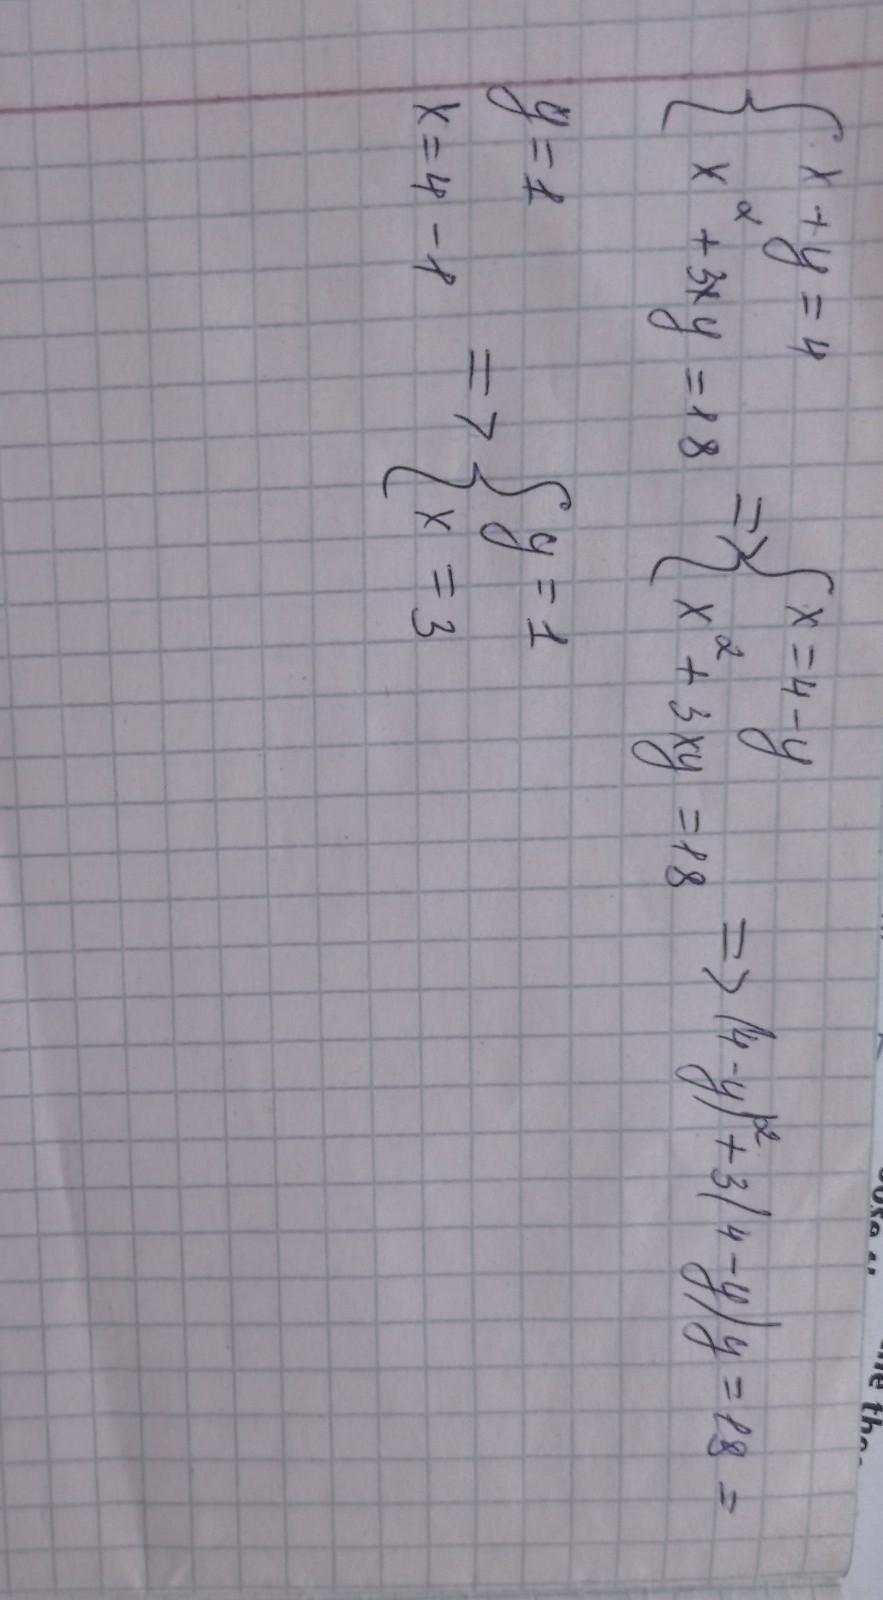 { x + y = 4
x² + 3xy = 18 => { x = 4 - y
x² + 3xy = 18 => (4 - y)² + 3(4 - y)y = 18 =
y = 1
x = 4 - 1 => { y = 1
x = 3